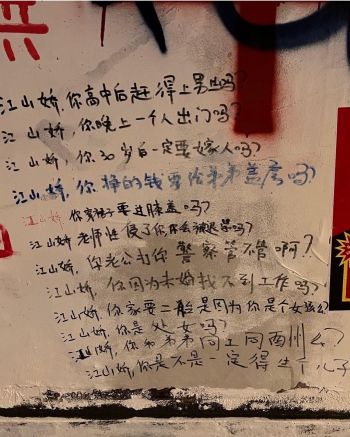 江山娇,你高中后赶得上男生吗?
江山娇,你晚上一个人出门吗?
江山娇,你30岁后一定要嫁人吗?
江山娇,你挣的钱要给弟弟盖房吗?
江山娇 你穿裙子要过膝盖吗?
江山娇 老师性侵了你你会被退学吗?
江山娇,你老公打你警察管不管啊?
江山娇,你因为未婚找不到工作吗?
江山娇,你家要二胎是因为你是个女孩么?
江山娇,你是处女吗?
江山娇,你和弟弟同工同酬么?
江山娇,你是不是一定得生个儿子